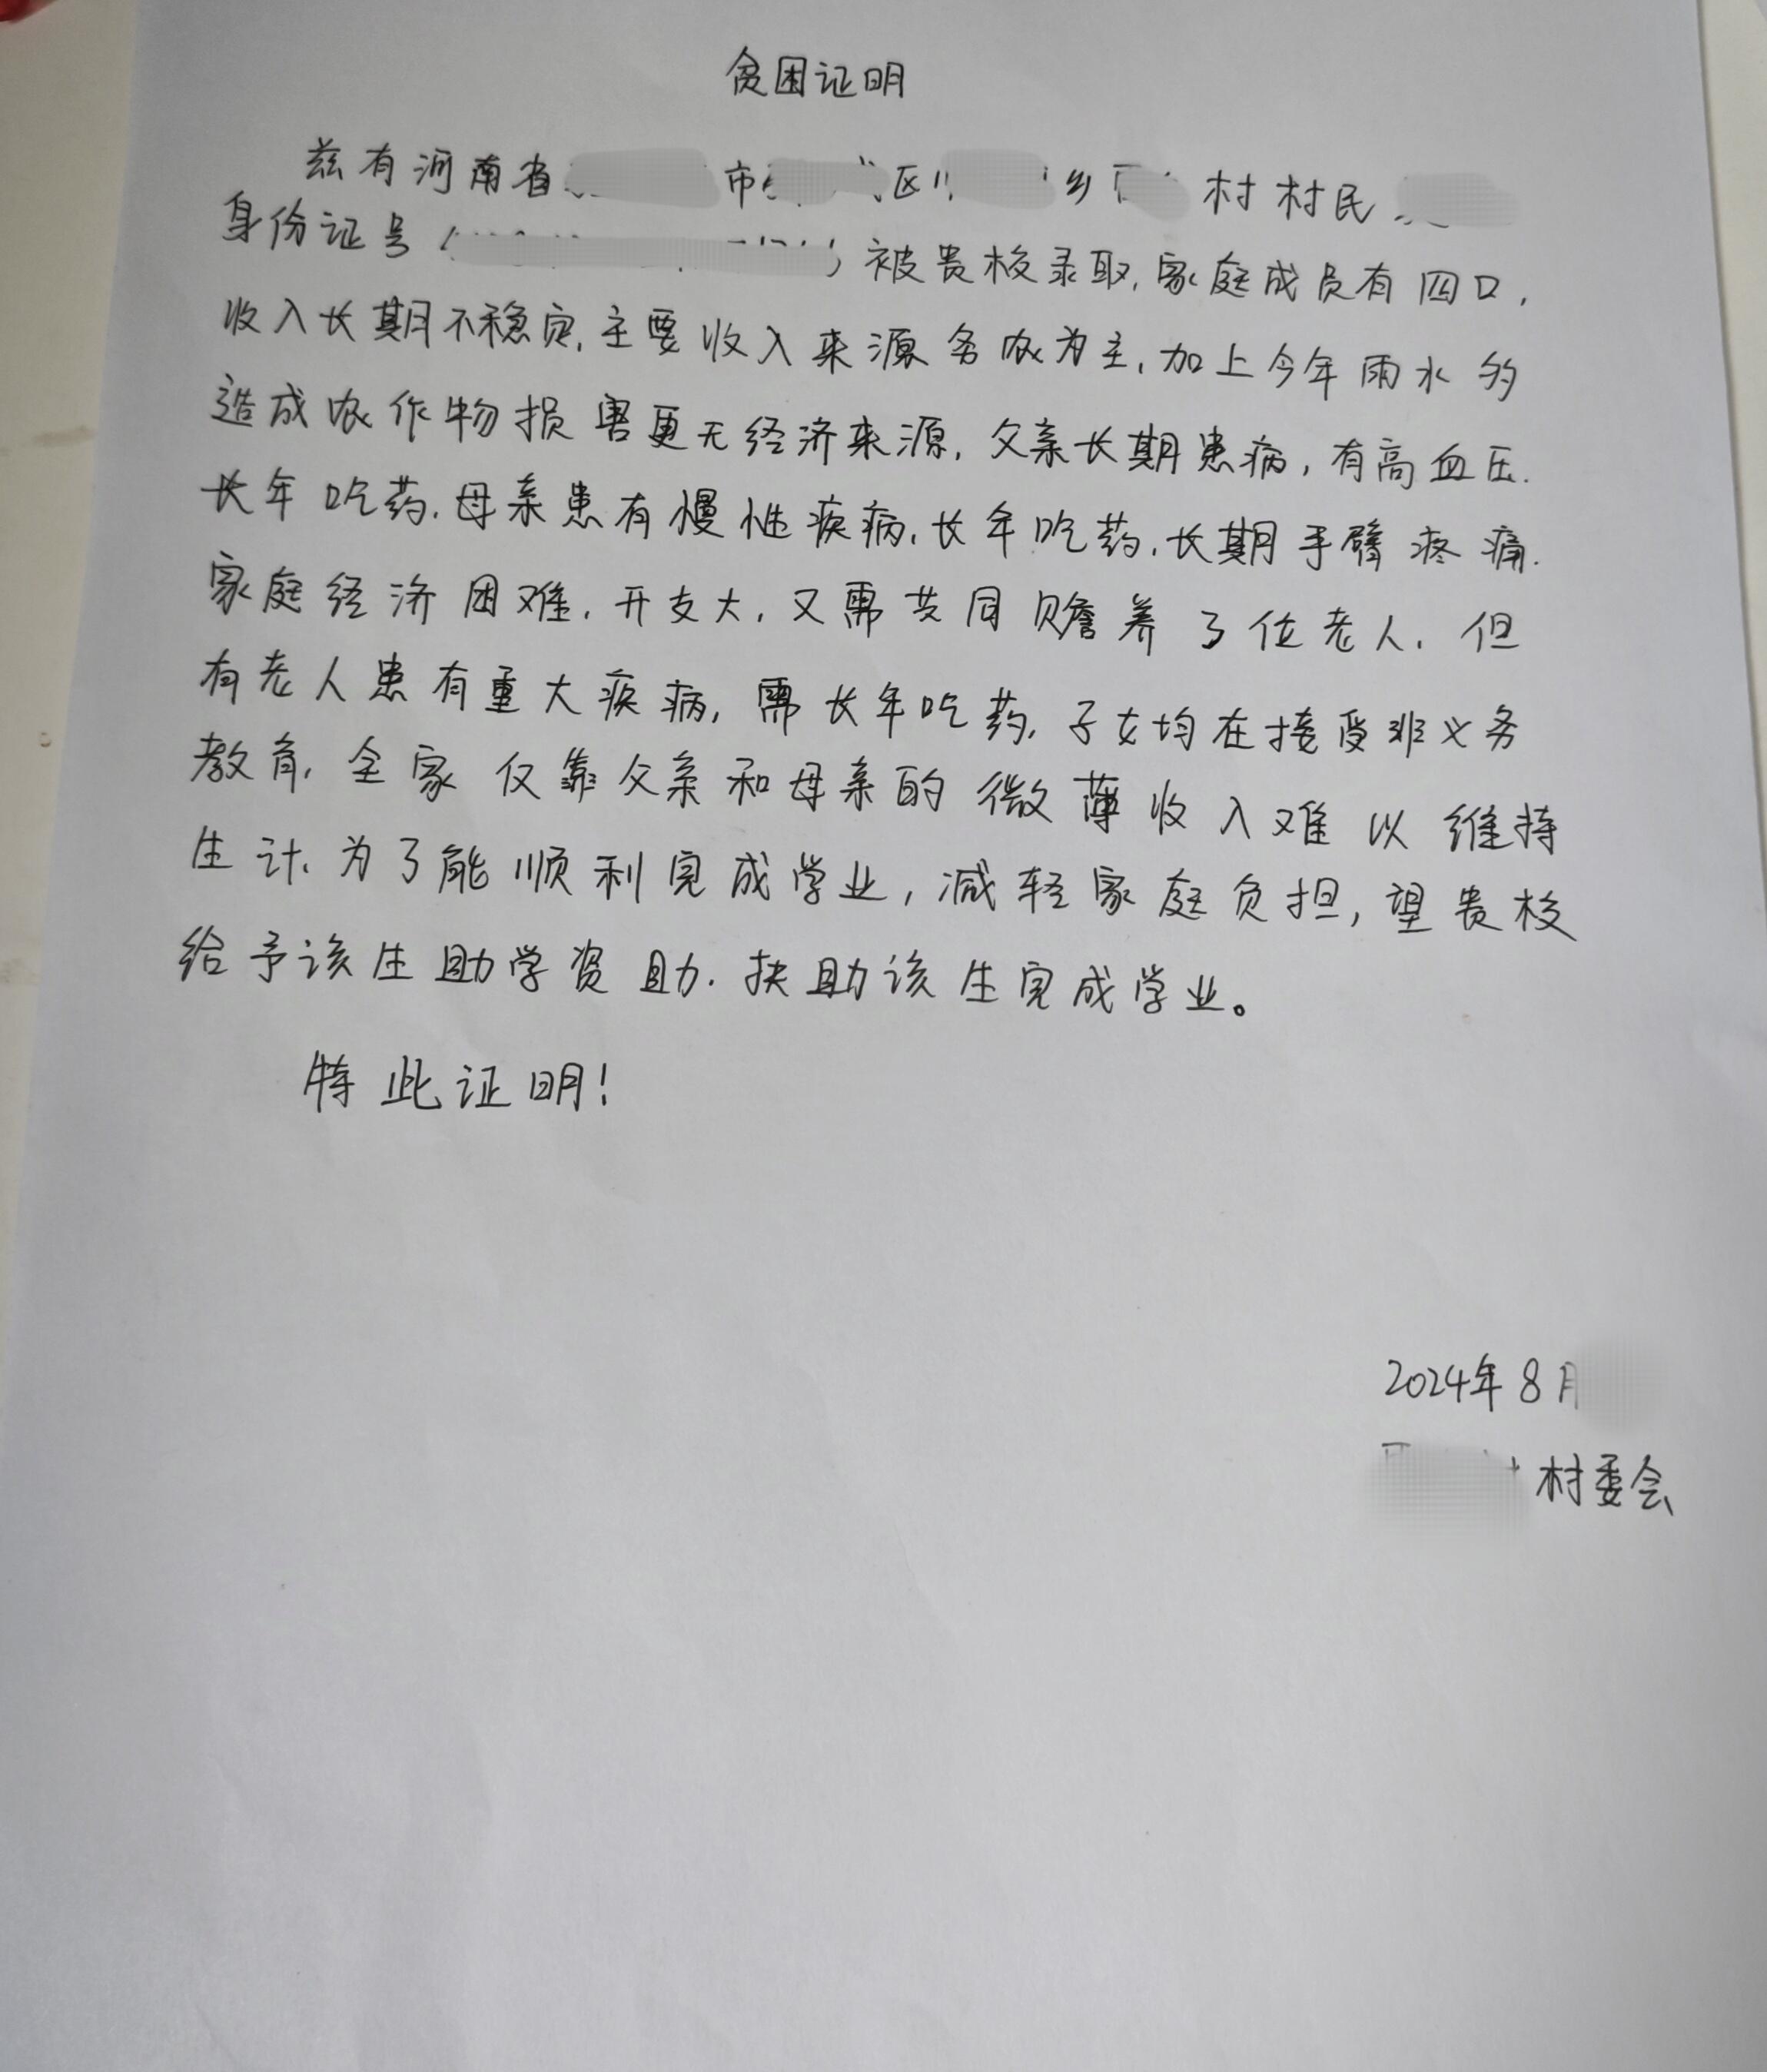 贫困证明
兹有河南省 市 区 乡 村村民
身份证号 被贵校录取,家庭成员有四口,
收入长期不稳定,主要收入来源务农为主,加上今年雨水多
造成农作物损害更无经济来源,父亲长期患病,有高血压.
长年吃药.母亲患有慢性疾病,长年吃药,长期手臂疼痛.
家庭经济困难,开支大,又需共同赡养3位老人.但
有老人患有重大疾病,需长年吃药,子女均在接受非义务
教育,全家仅靠父亲和母亲的微薄收入难以维持
生计、为了能顺利完成学业,减轻家庭负担,望贵校
给予该生助学资助.扶助该生完成学业。
特此证明!
2024年8月
村委会